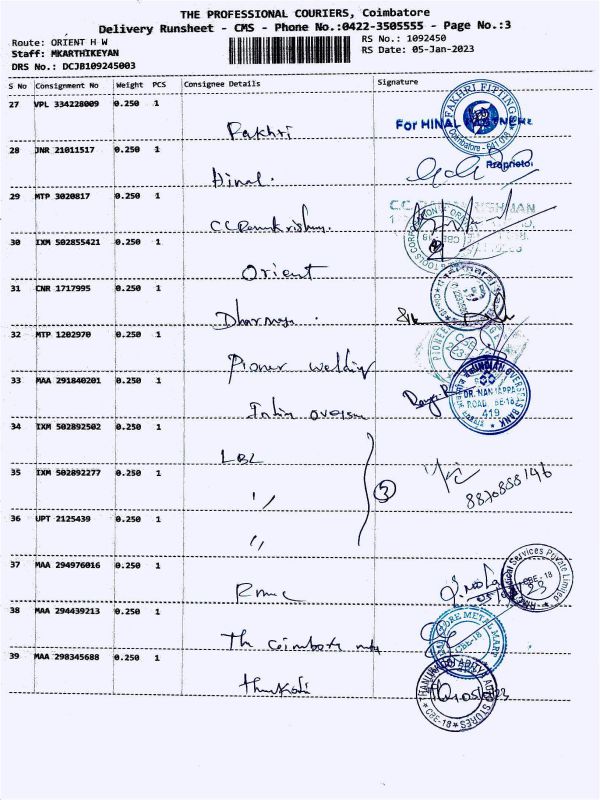 THE PROFESSIONAL COURIERS, Coimbatore
Delivery Runsheet - CMS - Phone No.:0422-3505555 - Page No.:3
Route: ORIENT H W
RS No.: 1092450
Staff: MKARTHIKEYAN
RS Date: 05-Jan-2023
DRS No.: DCJB109245003
S No Consignment No Weight PCS Consignee Details Signature
27 VPL 334228009 0.250 1 Fakhri
FAKHRI FITTINGS
Coimbatore - 641 018
For HINAL
28 JNR 21011517 0.250 1 Hinal.
Proprietor
29 MTP 3020817 0.250 1
30 IXM 502855421 0.250 1 Orient
& TOOLS CORPORATION
CBE-18
31 CNR 1717995 0.250 1
32 MTP 1202970 0.250 1 Pioner welding
PIONEER
33 MAA 291840201 0.250 1
INDIAN OVERSEAS BANK
DR. NANJAPPA
ROAD
419
34 IXM 502892502 0.250 1 LBL
35 IXM 502892277 0.250 1 "
③
8870888146
36 UPT 2125439 0.250 1 "
37 MAA 294976016 0.250 1
Services Private Limited
CBE - 18
38 MAA 294439213 0.250 1 The
METAL MART
CBE-18
39 MAA 298345688 0.250 1
ADITYA AUTO STORES
CBE-18